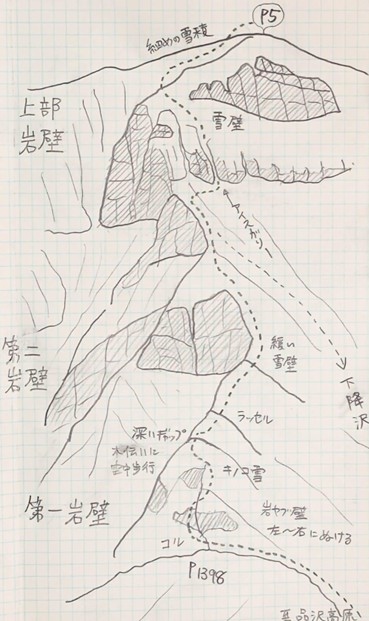 P5
細めの雪稜
上部
岩壁
雪壁
アイスガリー
第二
岩壁
緩い
雪壁
下降沢
ラッセル
深いギャップ
木伝いに
空中歩行
キノコ雪
第一岩壁
岩ヤブ壁
左〜右にぬける
コル
P1398